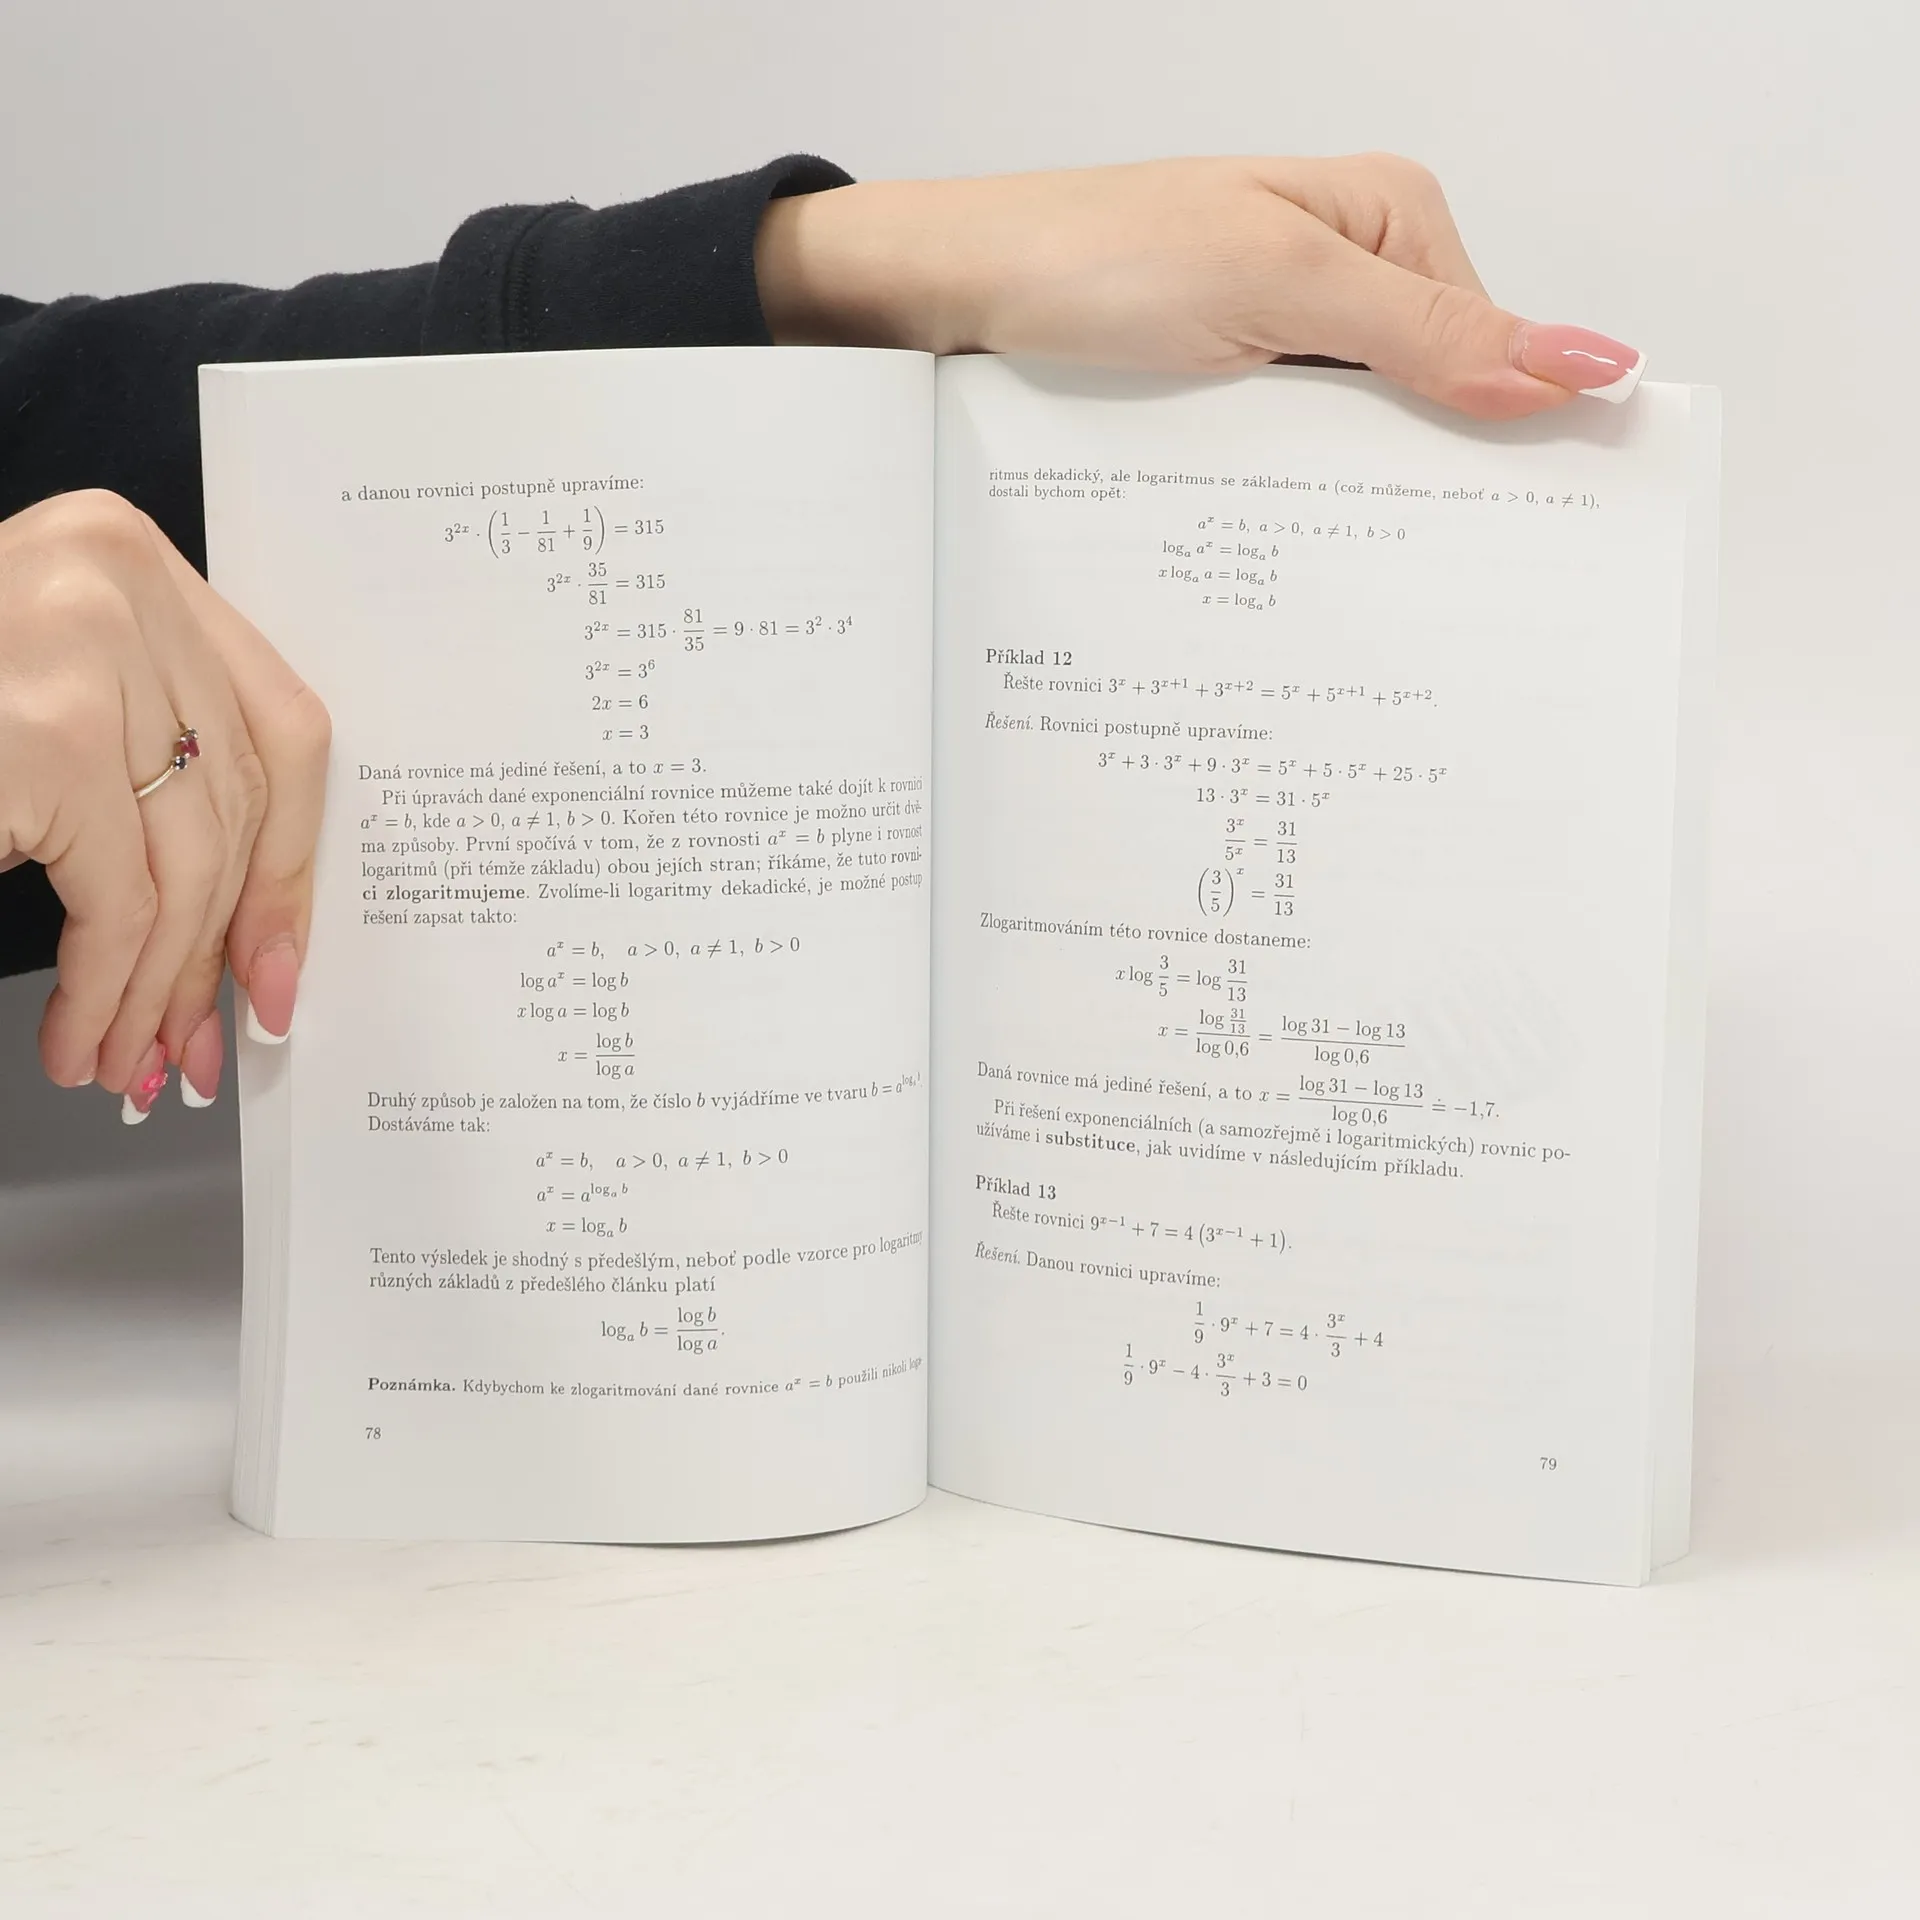 a danou rovnici postupně upravíme:
3^{2x} · (1/3 − 1/81 + 1/9) = 315
3^{2x} · 35/81 = 315
3^{2x} = 315 · 81/35 = 9 · 81 = 3^2 · 3^4
3^{2x} = 3^6
2x = 6
x = 3
Daná rovnice má jediné řešení, a to x = 3.
Při úpravách dané exponenciální rovnice můžeme také dojít k rovnici
a^x = b, kde a > 0, a ≠ 1, b > 0. Kořen této rovnice je možno určit dvě-
ma způsoby. První spočívá v tom, že z rovnosti a^x = b plyne i rovnost
logaritmů (při témže základu) obou jejích stran; říkáme, že tuto rovni-
ci zlogaritmujeme. Zvolíme-li logaritmy dekadické, je možné postup
řešení zapsat takto:
a^x = b, a > 0, a ≠ 1, b > 0
log a^x = log b
x log a = log b
x = log b / log a
Druhý způsob je založen na tom, že číslo b vyjádříme ve tvaru b = a^{log_a b}.
Dostáváme tak:
a^x = b, a > 0, a ≠ 1, b > 0
a^x = a^{log_a b}
x = log_a b
Tento výsledek je shodný s předešlým, neboť podle vzorce pro logaritmy
různých základů z předešlého článku platí
log_a b = log b / log a.
Poznámka. Kdybychom ke zlogaritmování dané rovnice a^x = b použili nikoli loga-
78
ritmus dekadický, ale logaritmus se základem a (což můžeme, neboť a > 0, a ≠ 1),
dostali bychom opět:
a^x = b, a > 0, a ≠ 1, b > 0
log_a a^x = log_a b
x log_a a = log_a b
x = log_a b
Příklad 12
Řešte rovnici 3^x + 3^{x+1} + 3^{x+2} = 5^x + 5^{x+1} + 5^{x+2}.
Řešení. Rovnici postupně upravíme:
3^x + 3 · 3^x + 9 · 3^x = 5^x + 5 · 5^x + 25 · 5^x
13 · 3^x = 31 · 5^x
3^x / 5^x = 31/13
(3/5)^x = 31/13
Zlogaritmováním této rovnice dostaneme:
x log 3/5 = log 31/13
x = log 31/13 / log 0,6 = (log 31 − log 13) / log 0,6
Daná rovnice má jediné řešení, a to x = (log 31 − log 13) / log 0,6 ≐ −1,7.
Při řešení exponenciálních (a samozřejmě i logaritmických) rovnic po-
užíváme i substituce, jak uvidíme v následujícím příkladu.
Příklad 13
Řešte rovnici 9^{x−1} + 7 = 4 (3^{x−1} + 1).
Řešení. Danou rovnici upravíme:
1/9 · 9^x + 7 = 4 · 3^x/3 + 4
1/9 · 9^x − 4 · 3^x/3 + 3 = 0
79